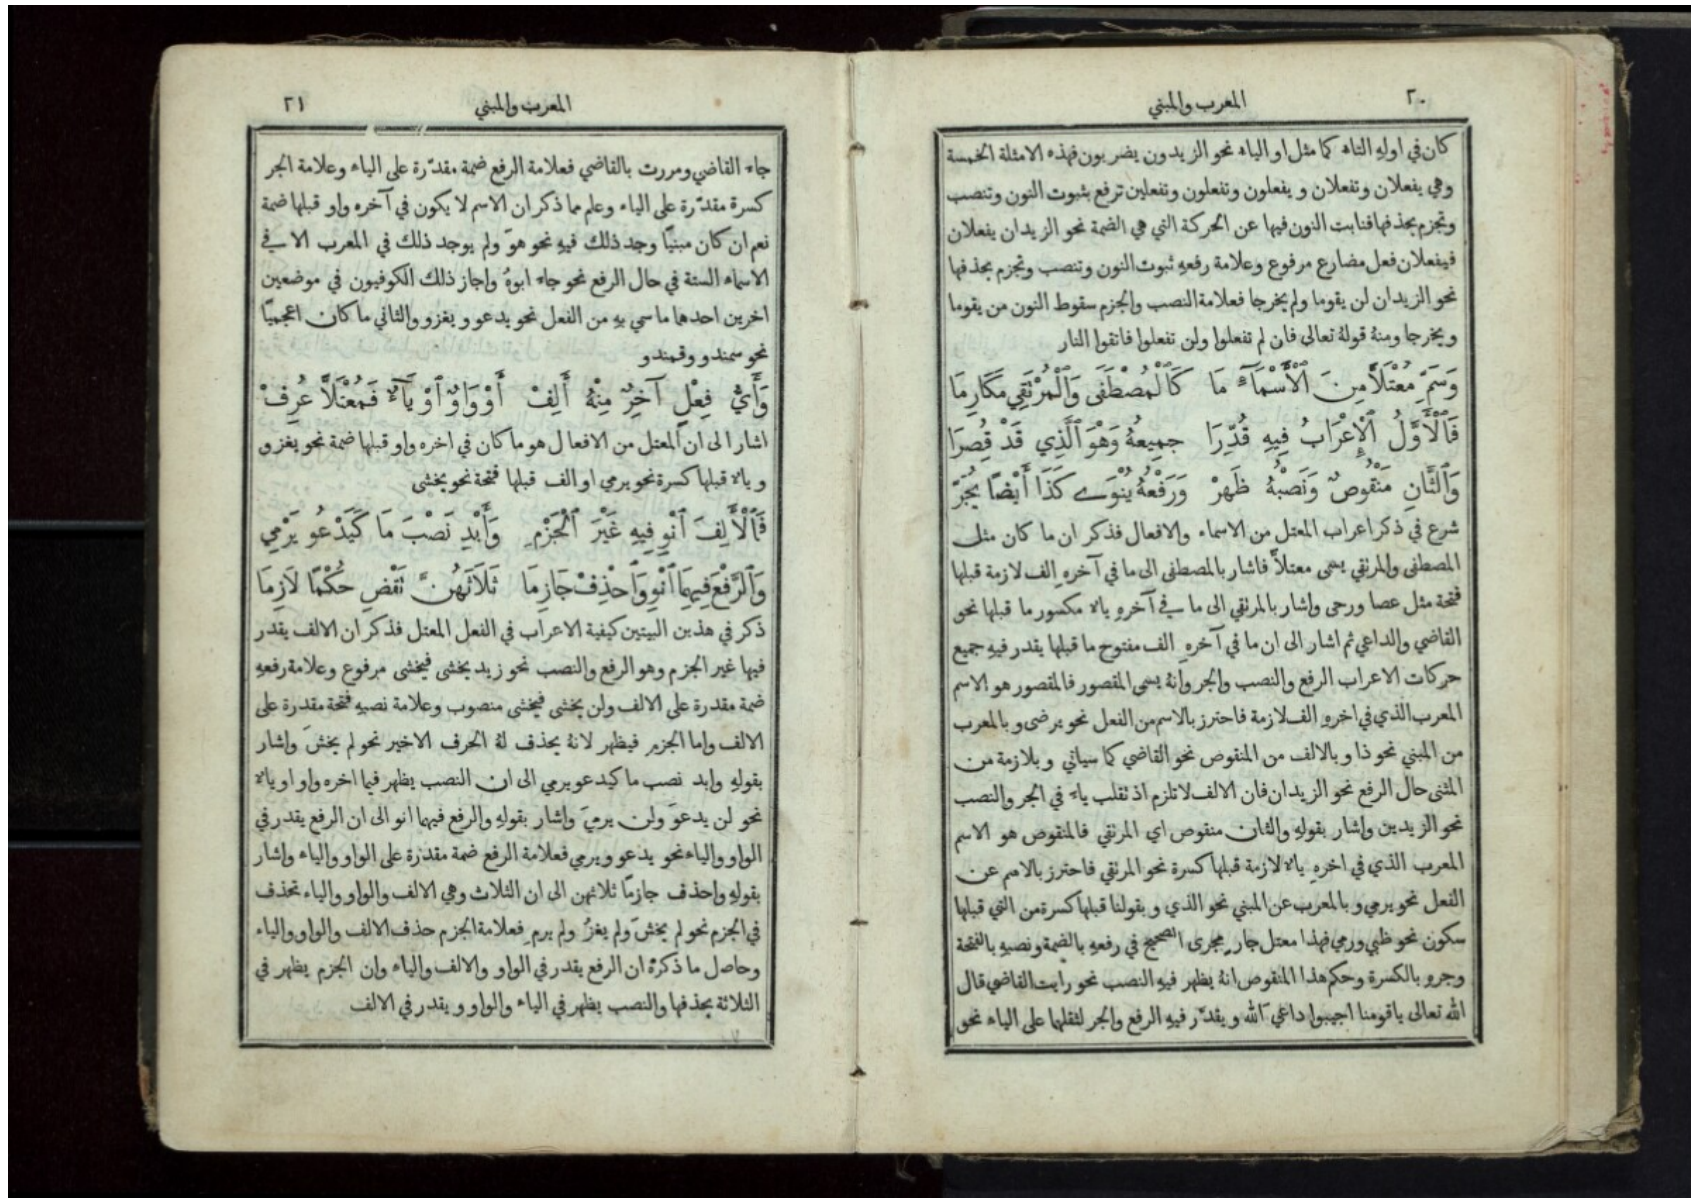 ٢٠
المعرب والمبني
كان في اولهِ التاء كما مثل او الياء نحو الزيدون يضربون فهذه الامثلة الخمسة
وهي يفعلان وتفعلان و يفعلون وتفعلون وتفعلين ترفع بثبوت النون وتنصب
وتجزم بحذفها فنابت النون فيها عن الحركة التي هي الضمة نحو الزيدان يفعلان
فيفعلان فعل مضارع مرفوع وعلامة رفعهِ ثبوت النون وتنصب وتجزم بحذفها
نحو الزيدان لن يقوما ولم يخرجا فعلامة النصب والجزم سقوط النون من يقوما
ويخرجا ومنهُ قولهُ تعالى فان لم تفعلوا ولن تفعلوا فاتقوا النار
وَسَمِّ مُعْتَلًّا مِنَ ٱلْأَسْمَآءِ مَا كَٱلْمُصْطَفَى وَٱلْمُرْتَقِي مَكَارِمَا
فَٱلْأَوَّلُ ٱلْإِعْرَابُ فِيهِ قُدِّرَا جَمِيعُهُ وَهْوَ ٱلَّذِي قَدْ قُصِرَا
وَٱلثَّانِ مَنْقُوصٌ وَنَصْبُهُ ظَهَرْ وَرَفْعُهُ يُنْوَى كَذَا أَيْضًا يُجَرّ
شرع في ذكر اعراب المعتل من الاسماء والافعال فذكر ان ما كان مثل
المصطفى والمرتقي يسمى معتلاًّ فاشار بالمصطفى الى ما في آخرهِ الف لازمة قبلها
فتحة مثل عصا ورحى واشار بالمرتقي الى ما في آخرهِ ياء مكسور ما قبلها نحو
القاضي والداعي ثم اشار الى ان ما في آخرهِ الف مفتوح ما قبلها يقدر فيهِ جميع
حركات الاعراب الرفع والنصب والجر وانهُ يسمى المقصور فالمقصور هو الاسم
المعرب الذي في اخرهِ الف لازمة فاحترز بالاسم من الفعل نحو يرضى و بالمعرب
من المبني نحو ذا و بالالف من المنقوص نحو القاضي كما سياتي و بلازمة من
المثنى حال الرفع نحو الزيدان فان الالف لا تلزم اذ تقلب ياء في الجر والنصب
نحو الزيدين واشار بقولهِ والثان منقوص اي المرتقي فالمنقوص هو الاسم
المعرب الذي في اخرهِ ياء لازمة قبلها كسرة نحو المرتقي فاحترز بالاسم عن
الفعل نحو يرمي و بالمعرب عن المبني نحو الذي و بقولنا قبلها كسرة من التي قبلها
سكون نحو ظبي ورمي فهذا معتل جارٍ مجرى الصحيح في رفعهِ بالضمة ونصبهِ بالفتحة
وجرهِ بالكسرة وحكم هذا المنقوص انهُ يظهر فيهِ النصب نحو رايت القاضي قال
الله تعالى ياقومنا اجيبوا داعيَ الله و يقدّر فيهِ الرفع والجر لثقلهما على الياء نحو
المعرب والمبني
٢١
جاء القاضي ومررت بالقاضي فعلامة الرفع ضمة مقدّرة على الياء وعلامة الجر
كسرة مقدّرة على الياء وعلم مما ذكر ان الاسم لا يكون في آخره واو قبلها ضمة
نعم ان كان مبنيًّا وجد ذلك فيهِ نحو هوَ ولم يوجد ذلك في المعرب الا في
الاسماء الستة في حال الرفع نحو جاء ابوهُ واجاز ذلك الكوفيون في موضعين
اخرين احدهما ما سمي بهِ من الفعل نحو يدعو و يغزو والثاني ما كان اعجميًّا
نحو سمندو وقمندو
وَأَيُّ فِعْلٍ آخِرٌ مِنْهُ أَلِفْ أَوْ وَاوٌ ٱوْ يَآءٌ فَمُعْتَلًّا عُرِفْ
اشار الى ان المعتل من الافعال هو ما كان في اخره واو قبلها ضمة نحو يغزو
و ياء قبلها كسرة نحو يرمي او الف قبلها فتحة نحو يخشى
فَٱلْأَلِفَ ٱنْوِ فِيهِ غَيْرَ ٱلْجَزْمِ وَأَبْدِ نَصْبَ مَا كَيَدْعُو يَرْمِي
وَٱلرَّفْعَ فِيهِمَا ٱنْوِ وَٱحْذِفْ جَازِمَا ثَلَاثَهُنَّ تَقْضِ حُكْمًا لَازِمَا
ذكر في هذين البيتين كيفية الاعراب في الفعل المعتل فذكر ان الالف يقدر
فيها غير الجزم وهو الرفع والنصب نحو زيد يخشى فيخشى مرفوع وعلامة رفعهِ
ضمة مقدرة على الالف ولن يخشى فيخشى منصوب وعلامة نصبهِ فتحة مقدرة على
الالف واما الجزم فيظهر لانهُ يحذف لهُ الحرف الاخير نحو لم يخشَ واشار
بقولهِ وابد نصب ما كيدعو يرمي الى ان النصب يظهر فيما اخره واو او ياء
نحو لن يدعوَ ولن يرميَ واشار بقولهِ والرفع فيهما انو الى ان الرفع يقدر في
الواو والياء نحو يدعو ويرمي فعلامة الرفع ضمة مقدرة على الواو والياء واشار
بقولهِ واحذف جازمًا ثلاثهن الى ان الثلاث وهي الالف والواو والياء تحذف
في الجزم نحو لم يخشَ ولم يغزُ ولم يرمِ فعلامة الجزم حذف الالف والواو والياء
وحاصل ما ذكرهُ ان الرفع يقدر في الواو والالف والياء وان الجزم يظهر في
الثلاثة بحذفها والنصب يظهر في الياء والواو و يقدر في الالف